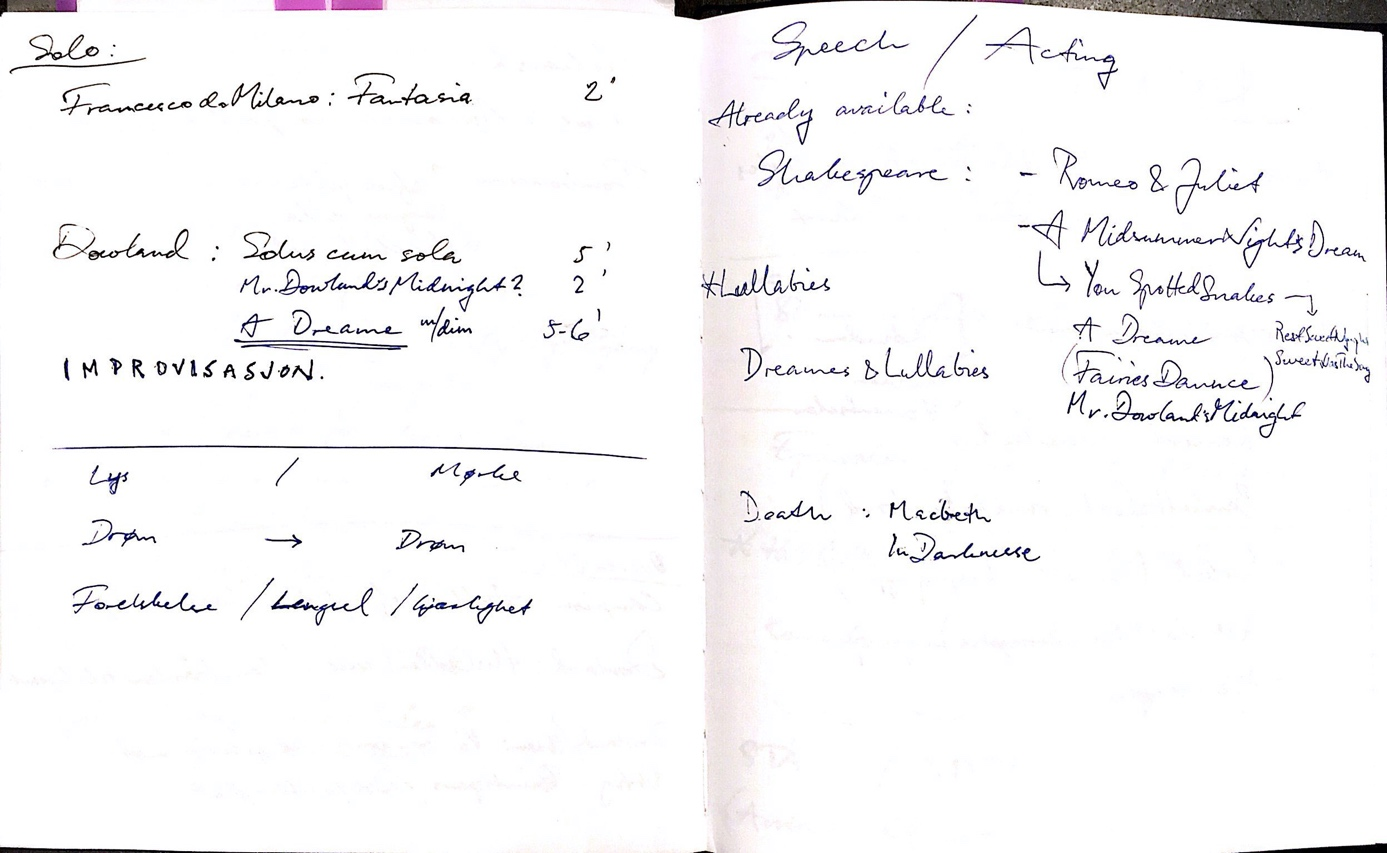 Solo:
Francesco da Milano: Fantasia 2'
Dowland : Solus cum sola 5'
Mr. Dowland's Midnight? 2'
A Dreame m/dim 5-6'
IMPROVISASJON.
Lys / Mørke
Drøm → Drøm
Forelskelse / Lengsel / Kjærlighet
Speech / Acting
Already available :
Shakespeare : - Romeo & Juliet
- A Midsummer Night's Dream
↳ You Spotted Snakes →
#Lullabies
A Dreame
Rest Sweet Nymphs
Sweet Was The Song
Dreames & Lullabies
(Fairies Daunce)
Mr. Dowland's Midnight
Death : Macbeth
In Darknesse